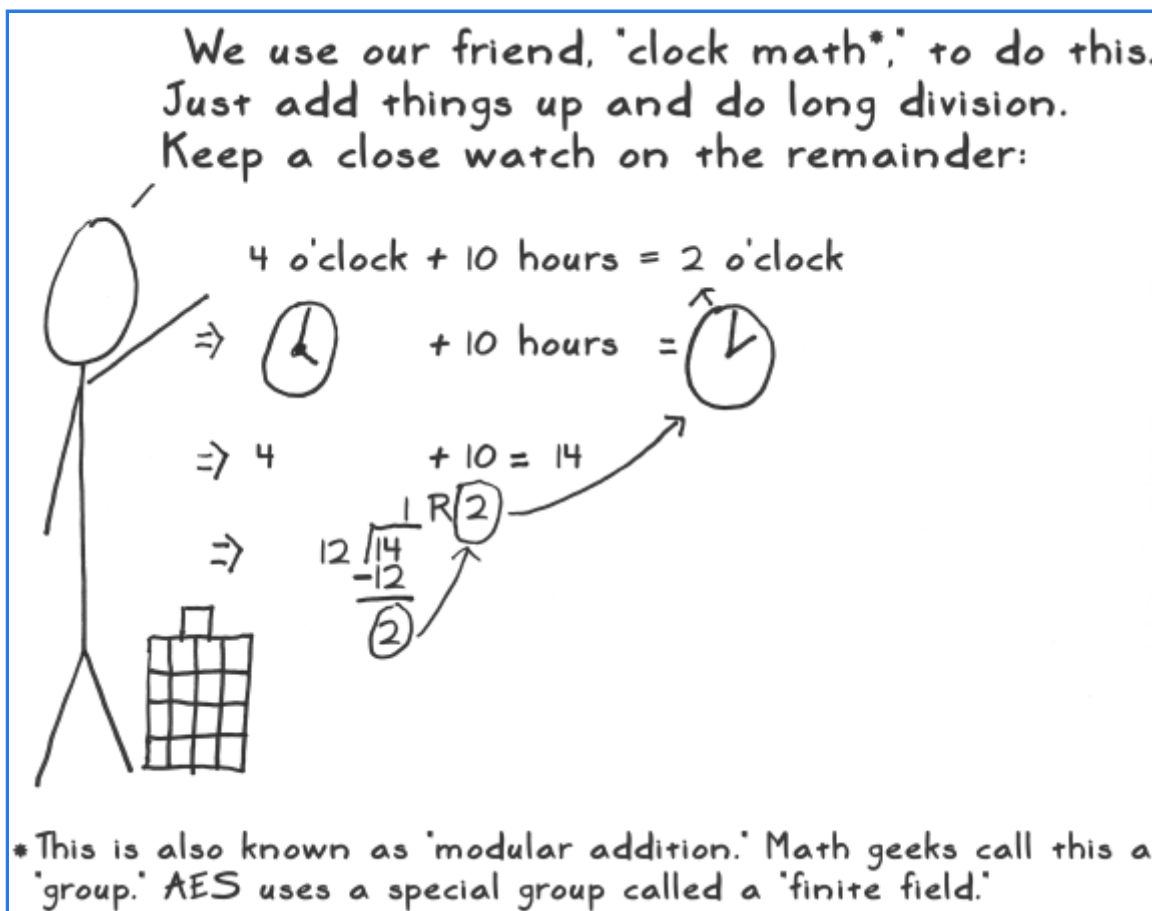 We use our friend, "clock math*," to do this.
Just add things up and do long division.
Keep a close watch on the remainder:
4 o'clock + 10 hours = 2 o'clock
=> + 10 hours =
=> 4 + 10 = 14
1 R 2
=> 12 14
-12
2
* This is also known as "modular addition." Math geeks call this a
"group." AES uses a special group called a "finite field."